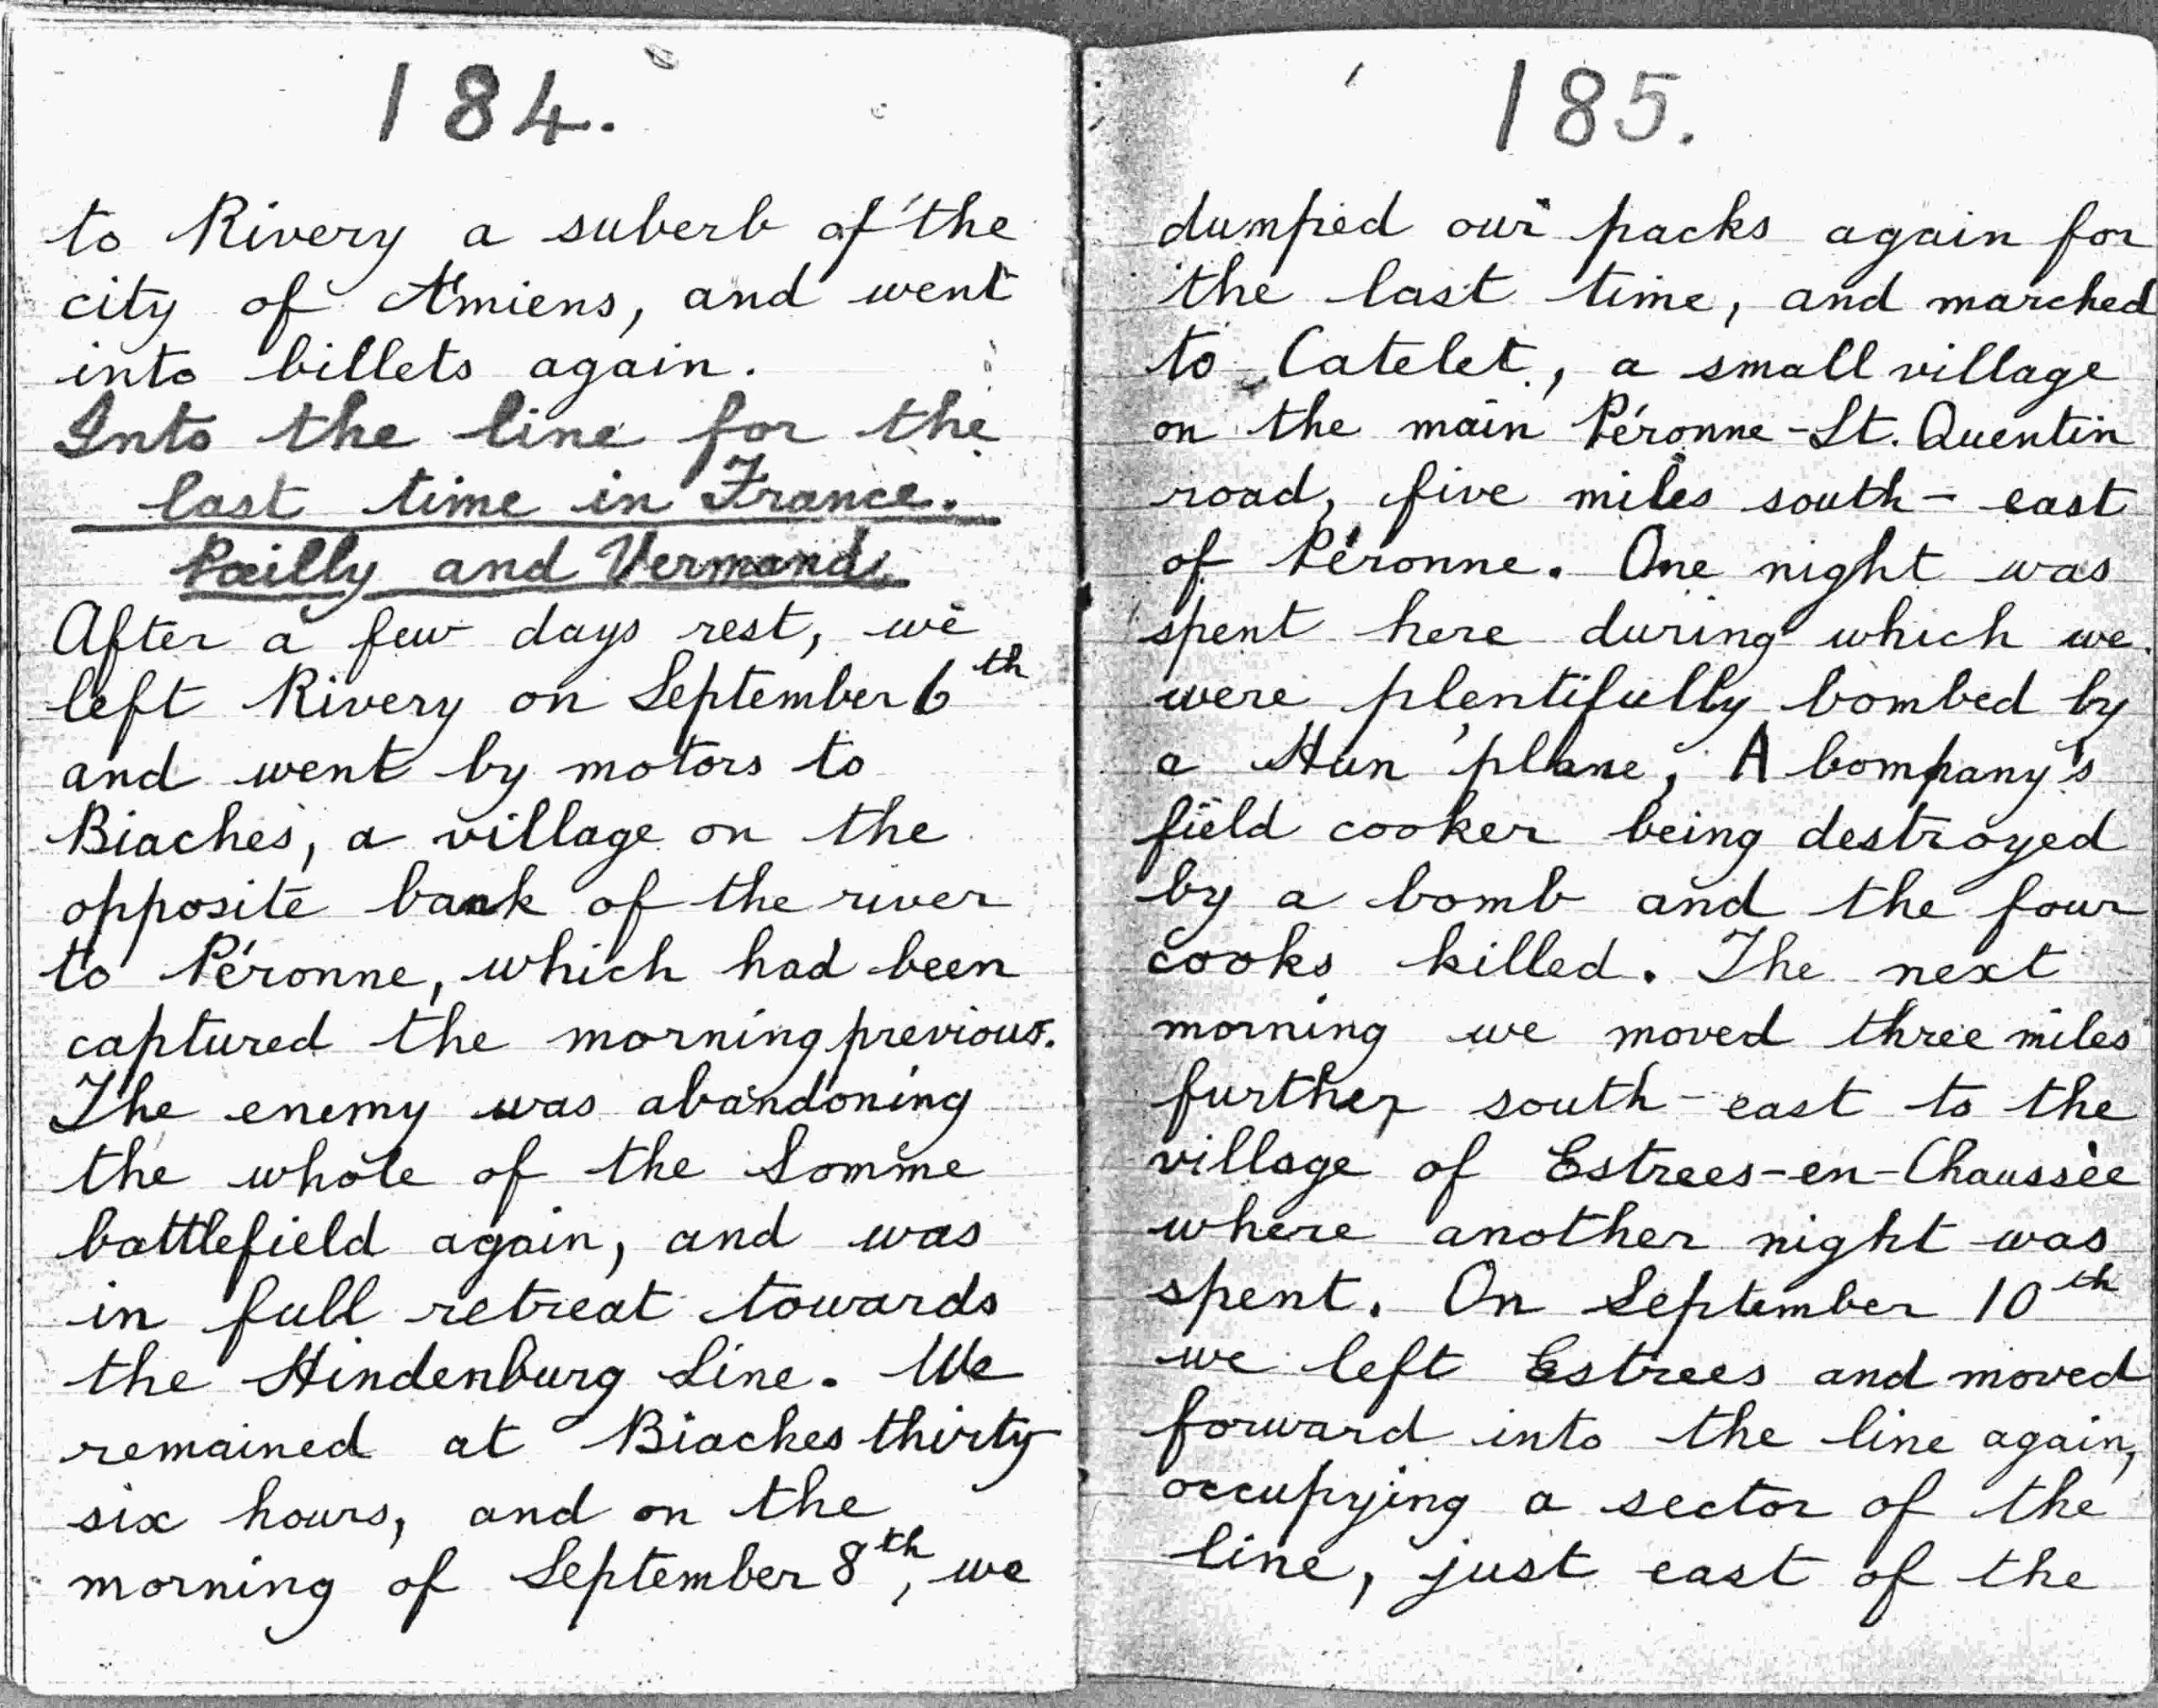 184.
to Rivery a suberb of the
city of Amiens, and went
into billets again.
Into the line for the
last time in France.
Pœilly and Vermand.
After a few days rest, we
left Rivery on September 6th
and went by motors to
Biaches, a village on the
opposite bank of the river
to Péronne, which had been
captured the morning previous.
The enemy was abandoning
the whole of the Somme
battlefield again, and was
in full retreat towards
the Hindenburg Line. We
remained at Biaches thirty
six hours, and on the
morning of September 8th, we
185.
dumped our packs again for
the last time, and marched
to Catelet, a small village
on the main Péronne-St. Quentin
road, five miles south-east
of Péronne. One night was
spent here during which we
were plentifully bombed by
a Hun 'plane, A Company's
field cooker being destroyed
by a bomb and the four
cooks killed. The next
morning we moved three miles
further south-east to the
village of Estrees-en-Chaussèe
where another night was
spent. On September 10th
we left Estrees and moved
forward into the line again,
occupying a sector of the
line, just east of the